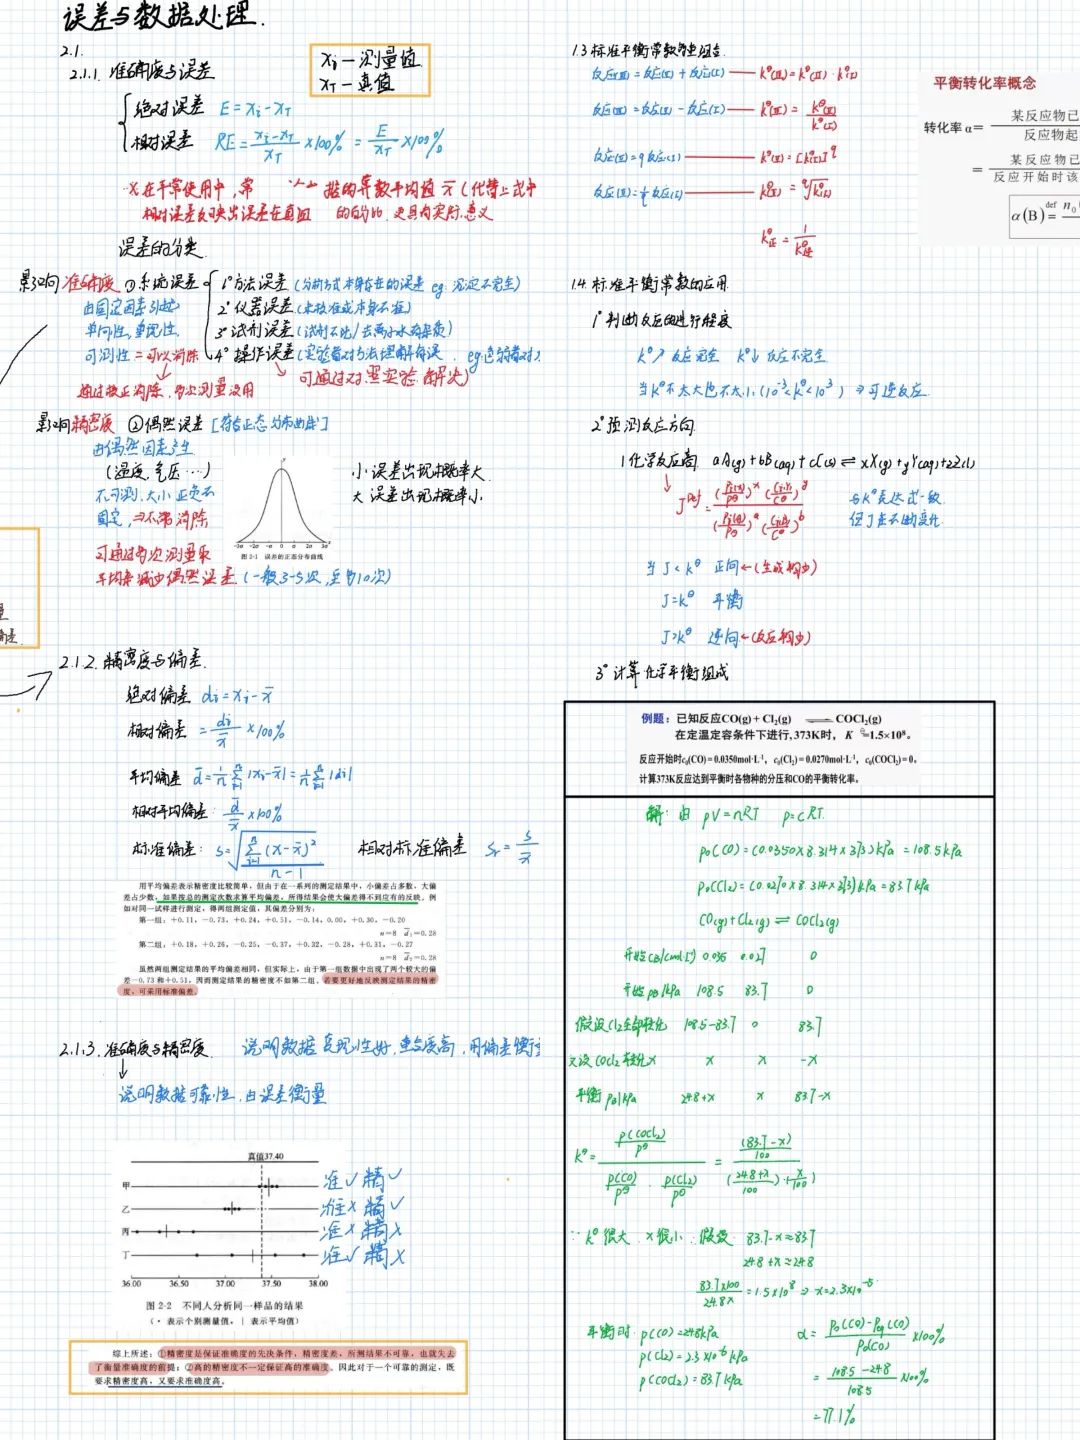 误差与数据处理.
2.1.
2.1.1. 准确度与误差
xi — 测量值
xT — 真值
绝对误差 E = xi - xT
相对误差 RE = (xi - xT)/xT × 100% = E/xT × 100%
在平常使用中, 常
的算数平均值 x̄ (代替上式中
相对误差反映出误差在真值
更具有实际意义
误差的分类
影响准确度 ①系统误差
由固定因素引起
单向性, 重现性
可测性 = 可以消除
通过校正消除, 多次测量没用
1° 方法误差 (分析方式本身存在的误差 eg. 沉淀不完全)
2° 仪器误差 (未校准或本身不准)
3° 试剂误差 (试剂不纯/去离子水有杂质)
4° 操作误差 (实验者对方法理解有误.
可通过对照实验 解决)
影响精密度 ②偶然误差 [符合正态分布曲线]
由偶然因素产生
(温度, 气压 …)
不可测, 大小 正负不
固定, ⇒不能消除
可通过多次测量取
平均来减少偶然误差 (一般3-5次, 至多10次)
小误差出现概率大
大误差出现概率小.
y
-3σ -2σ -σ 0 σ 2σ 3σ x
图 2-1 误差的正态分布曲线
2.1.2. 精密度与偏差.
绝对偏差 di = xi - x̄
相对偏差 = di/x̄ × 100%
平均偏差 d̄ = 1/n Σ|xi - x̄| = 1/n Σ|di|
相对平均偏差: d̄/x̄ × 100%
标准偏差: s = √(Σ(x - x̄)²/(n-1)) 相对标准偏差 Sr = s/x̄
用平均偏差表示精密度比较简单，但由于在一系列的测定结果中，小偏差占多数，大偏
差占少数，如果按总的测定次数求算平均偏差，所得结果会使大偏差得不到应有的反映。例
如对同一试样进行测定，得两组测定值，其偏差分别为：
第一组：+0.11，-0.73，+0.24，+0.51，-0.14，0.00，+0.30，-0.20
n=8 d̄₁=0.28
第二组：+0.18，+0.26，-0.25，-0.37，+0.32，-0.28，+0.31，-0.27
n=8 d̄₂=0.28
虽然两组测定结果的平均偏差相同，但实际上，由于第一组数据中出现了两个较大的偏
差-0.73 和+0.51，因而测定结果的精密度不如第二组。若要更好地反映测定结果的精密
度，可采用标准偏差。
2.1.3. 准确度与精密度. 说明数据复现性好, 重复度高, 用偏差衡
↓
说明数据可靠性, 由误差衡量
真值37.40
甲 准✓ 精✓
乙 准× 精✓
丙 准× 精×
丁 准✓ 精×
36.00 36.50 37.00 37.50 38.00
图 2-2 不同人分析同一样品的结果
（· 表示个别测量值，| 表示平均值）
综上所述：①精密度是保证准确度的先决条件，精密度差，所测结果不可靠，也就失去
了衡量准确度的前提；②高的精密度不一定保证高的准确度。因此对于一个可靠的测定，既
要求精密度高，又要求准确度高。
1.3 标准平衡常数的组合
反应(Ⅲ) = 反应(Ⅱ) + 反应(Ⅰ) — K°(Ⅲ) = K°(Ⅱ)·K°(Ⅰ)
反应(Ⅲ) = 反应(Ⅱ) - 反应(Ⅰ) — K°(Ⅲ) = K°(Ⅱ)/K°(Ⅰ)
反应(Ⅱ) = q 反应(Ⅰ) — K°(Ⅱ) = [K°(Ⅰ)]^q
反应(Ⅱ) = 1/q 反应(Ⅰ) — K°(Ⅱ) = q√K°(Ⅰ)
K°正 = 1/K°逆
平衡转化率概念
转化率 α = 某反应物已
反应物起
= 某反应物已
反应开始时该
α(B) def= n0
1.4. 标准平衡常数的应用.
1° 判断反应的进行程度
K°↗ 反应完全 K°↓ 反应不完全.
当K°不太大也不太小 (10⁻³<K°<10³) ⇒可逆反应.
2° 预测反应方向
1 化学反应商. aA(g) + bB(aq) + cC(s) ⇌ xX(g) + yY(aq) + zZ(l)
与K°表达式一致
但J在不断变化.
当 J < K° 正向 ← (生成物少)
J = K° 平衡
J > K° 逆向 ← (反应物少)
3° 计算化学平衡组成
例题：已知反应CO(g) + Cl₂(g) ⇌ COCl₂(g)
在定温定容条件下进行, 373K时， K⊖=1.5×10⁸。
反应开始时c₀(CO)=0.0350mol·L⁻¹，c₀(Cl₂)=0.0270mol·L⁻¹，c₀(COCl₂)=0。
计算373K反应达到平衡时各物种的分压和CO的平衡转化率。
解: 由 pV = nRT p = cRT.
p₀(CO) = (0.0350 × 8.314 × 373) kPa = 108.5 kPa
p₀(Cl₂) = (0.0270 × 8.314 × 373) kPa = 83.7 kPa
CO(g) + Cl₂(g) ⇌ COCl₂(g)
开始 cB/(mol·L⁻¹) 0.035 0.027 0
开始 pB/kPa 108.5 83.7 0
假设Cl₂全部转化 108.5-83.7 0 83.7
又设 COCl₂ 转化x x x -x
平衡 pB/kPa 24.8+x x 83.7-x
K° = (p(COCl₂)/p°)/(p(CO)/p° · p(Cl₂)/p°) = ((83.7-x)/100)/((24.8+x)/100)·(x/100)
∵ K°很大 ∴ x很小 ∴ 假设 83.7-x≈83.7
24.8+x≈24.8
83.7×100/24.8x = 1.5×10⁸ ⇒ x=2.3×10⁻⁶
平衡时: p(CO)=24.8kPa
p(Cl₂)=2.3×10⁻⁶ kPa
p(COCl₂)=83.7 kPa
α = (p₀(CO) - peq(CO))/p₀(CO) × 100%
= (108.5-24.8)/108.5 × 100%
= 77.1%